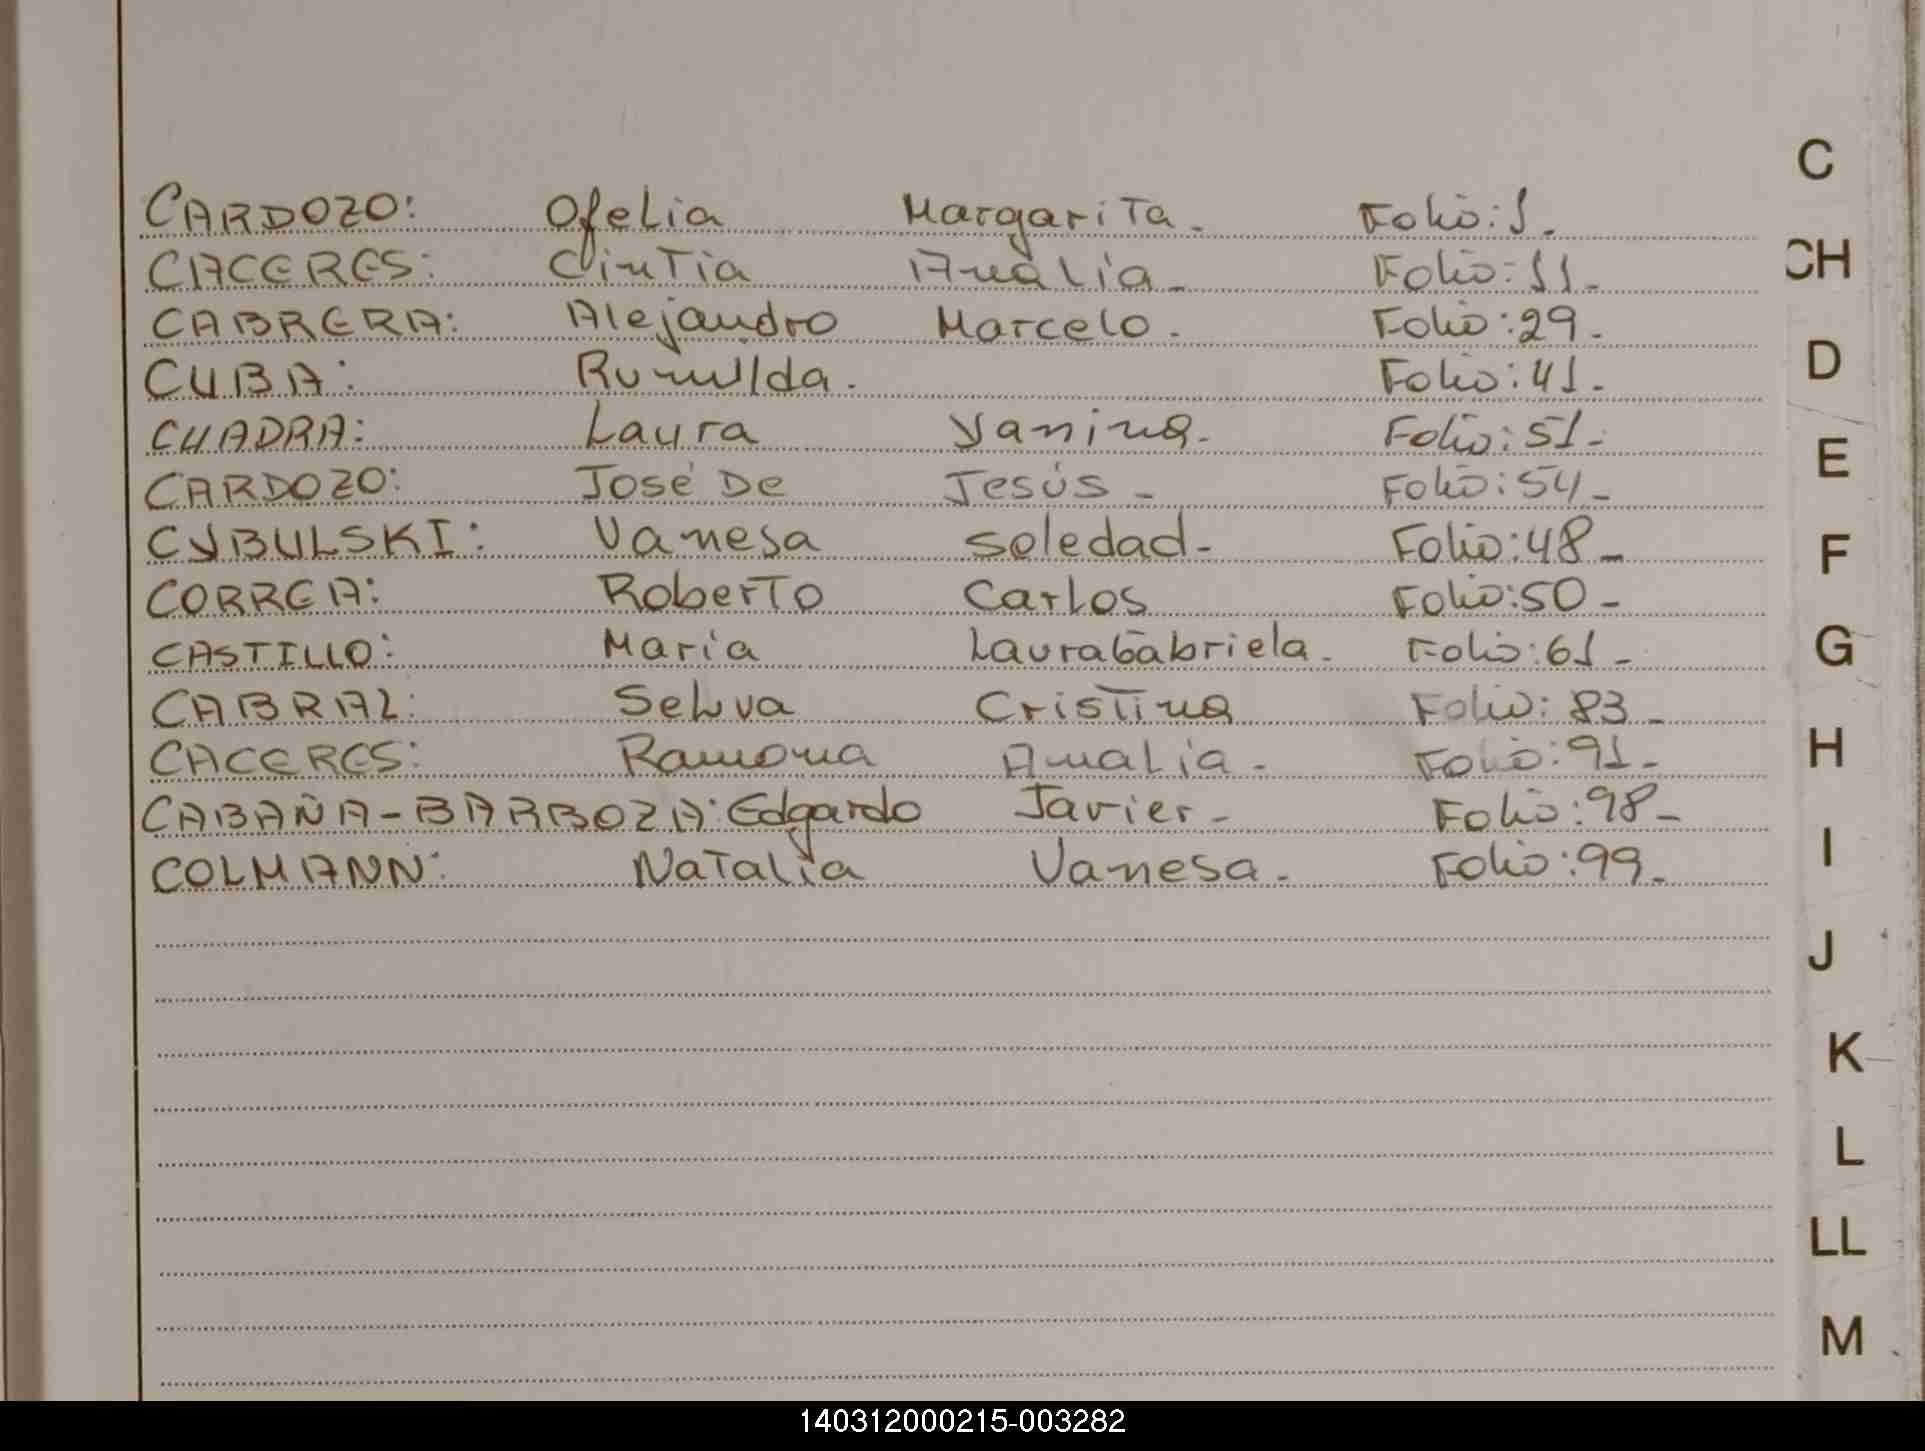 CARDOZO: Ofelia Margarita. Folio: 1.
CACERES: Cintia Analia. Folio: 11.
CABRERA: Alejandro Marcelo. Folio: 29.
CUBA: Rumilda. Folio: 41.
CUADRA: Laura Yanina. Folio: 51.
CARDOZO: José De Jesús. Folio: 54.
CYBULSKI: Vanesa Soledad. Folio: 48.
CORREA: Roberto Carlos Folio: 50.
CASTILLO: María Laura Gabriela. Folio: 61.
CABRAL: Selva Cristina Folio: 83.
CACERES: Ramona Analia. Folio: 91.
CABAÑA-BARBOZA: Edgardo Javier. Folio: 98.
COLMANN: Natalia Vanesa. Folio: 99.
C
CH
D
E
F
G
H
I
J
K
L
LL
M
140312000215-003282